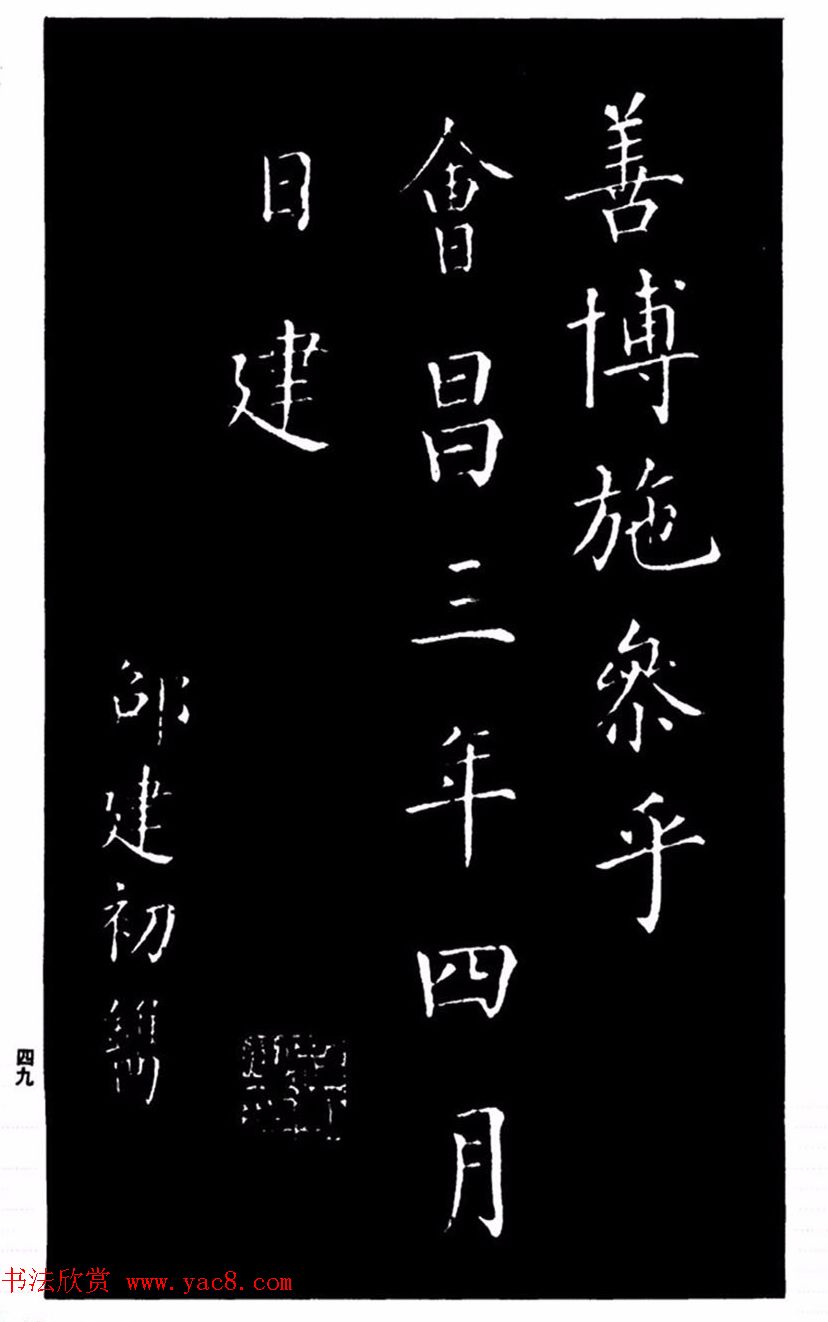 善博施叅乎
會昌三年四月
日建
邵建初鐫
四九
书法欣赏 www.yac8.com